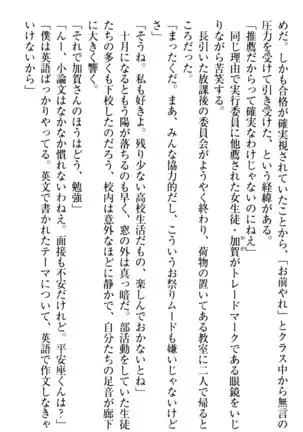 めだ。しかも合格が確実視されていることから、「お前やれ」とクラス中から無言の
圧力を受けて引き受けた、という経緯がある。
「推薦だからって確実なわけじゃないのにねえ」
同じ理由で実行委員に他薦された女生徒・加賀がトレードマークである眼鏡をいじ
りながら苦笑する。
長引いた放課後の委員会がようやく終わり、荷物の置いてある教室に二人で帰ると
ころだった。
「まったくだ。まあ、みんな協力的だし、こういうお祭りムードも嫌いじゃないけど
さ」
「そうね。私も好きよ。残り少ない高校生活だもの、楽しんでおかないとね」
十月になるともう陽が落ちるのも早く、窓の外は真っ暗だ。部活動をしていた生徒
たちの多くも下校したのだろう、校内は意外なほどに静かで、自分たちの足音が廊下
に大きく響く。
「それで加賀さんのほうはどう、勉強」
「んー、小論文はなかなか慣れないわねえ。面接も不安だけれど。平安座くんは？」
「僕は英語ばっかりやってる。英文で書かれたテーマについて、英語で作文しなきゃ
いけないから」